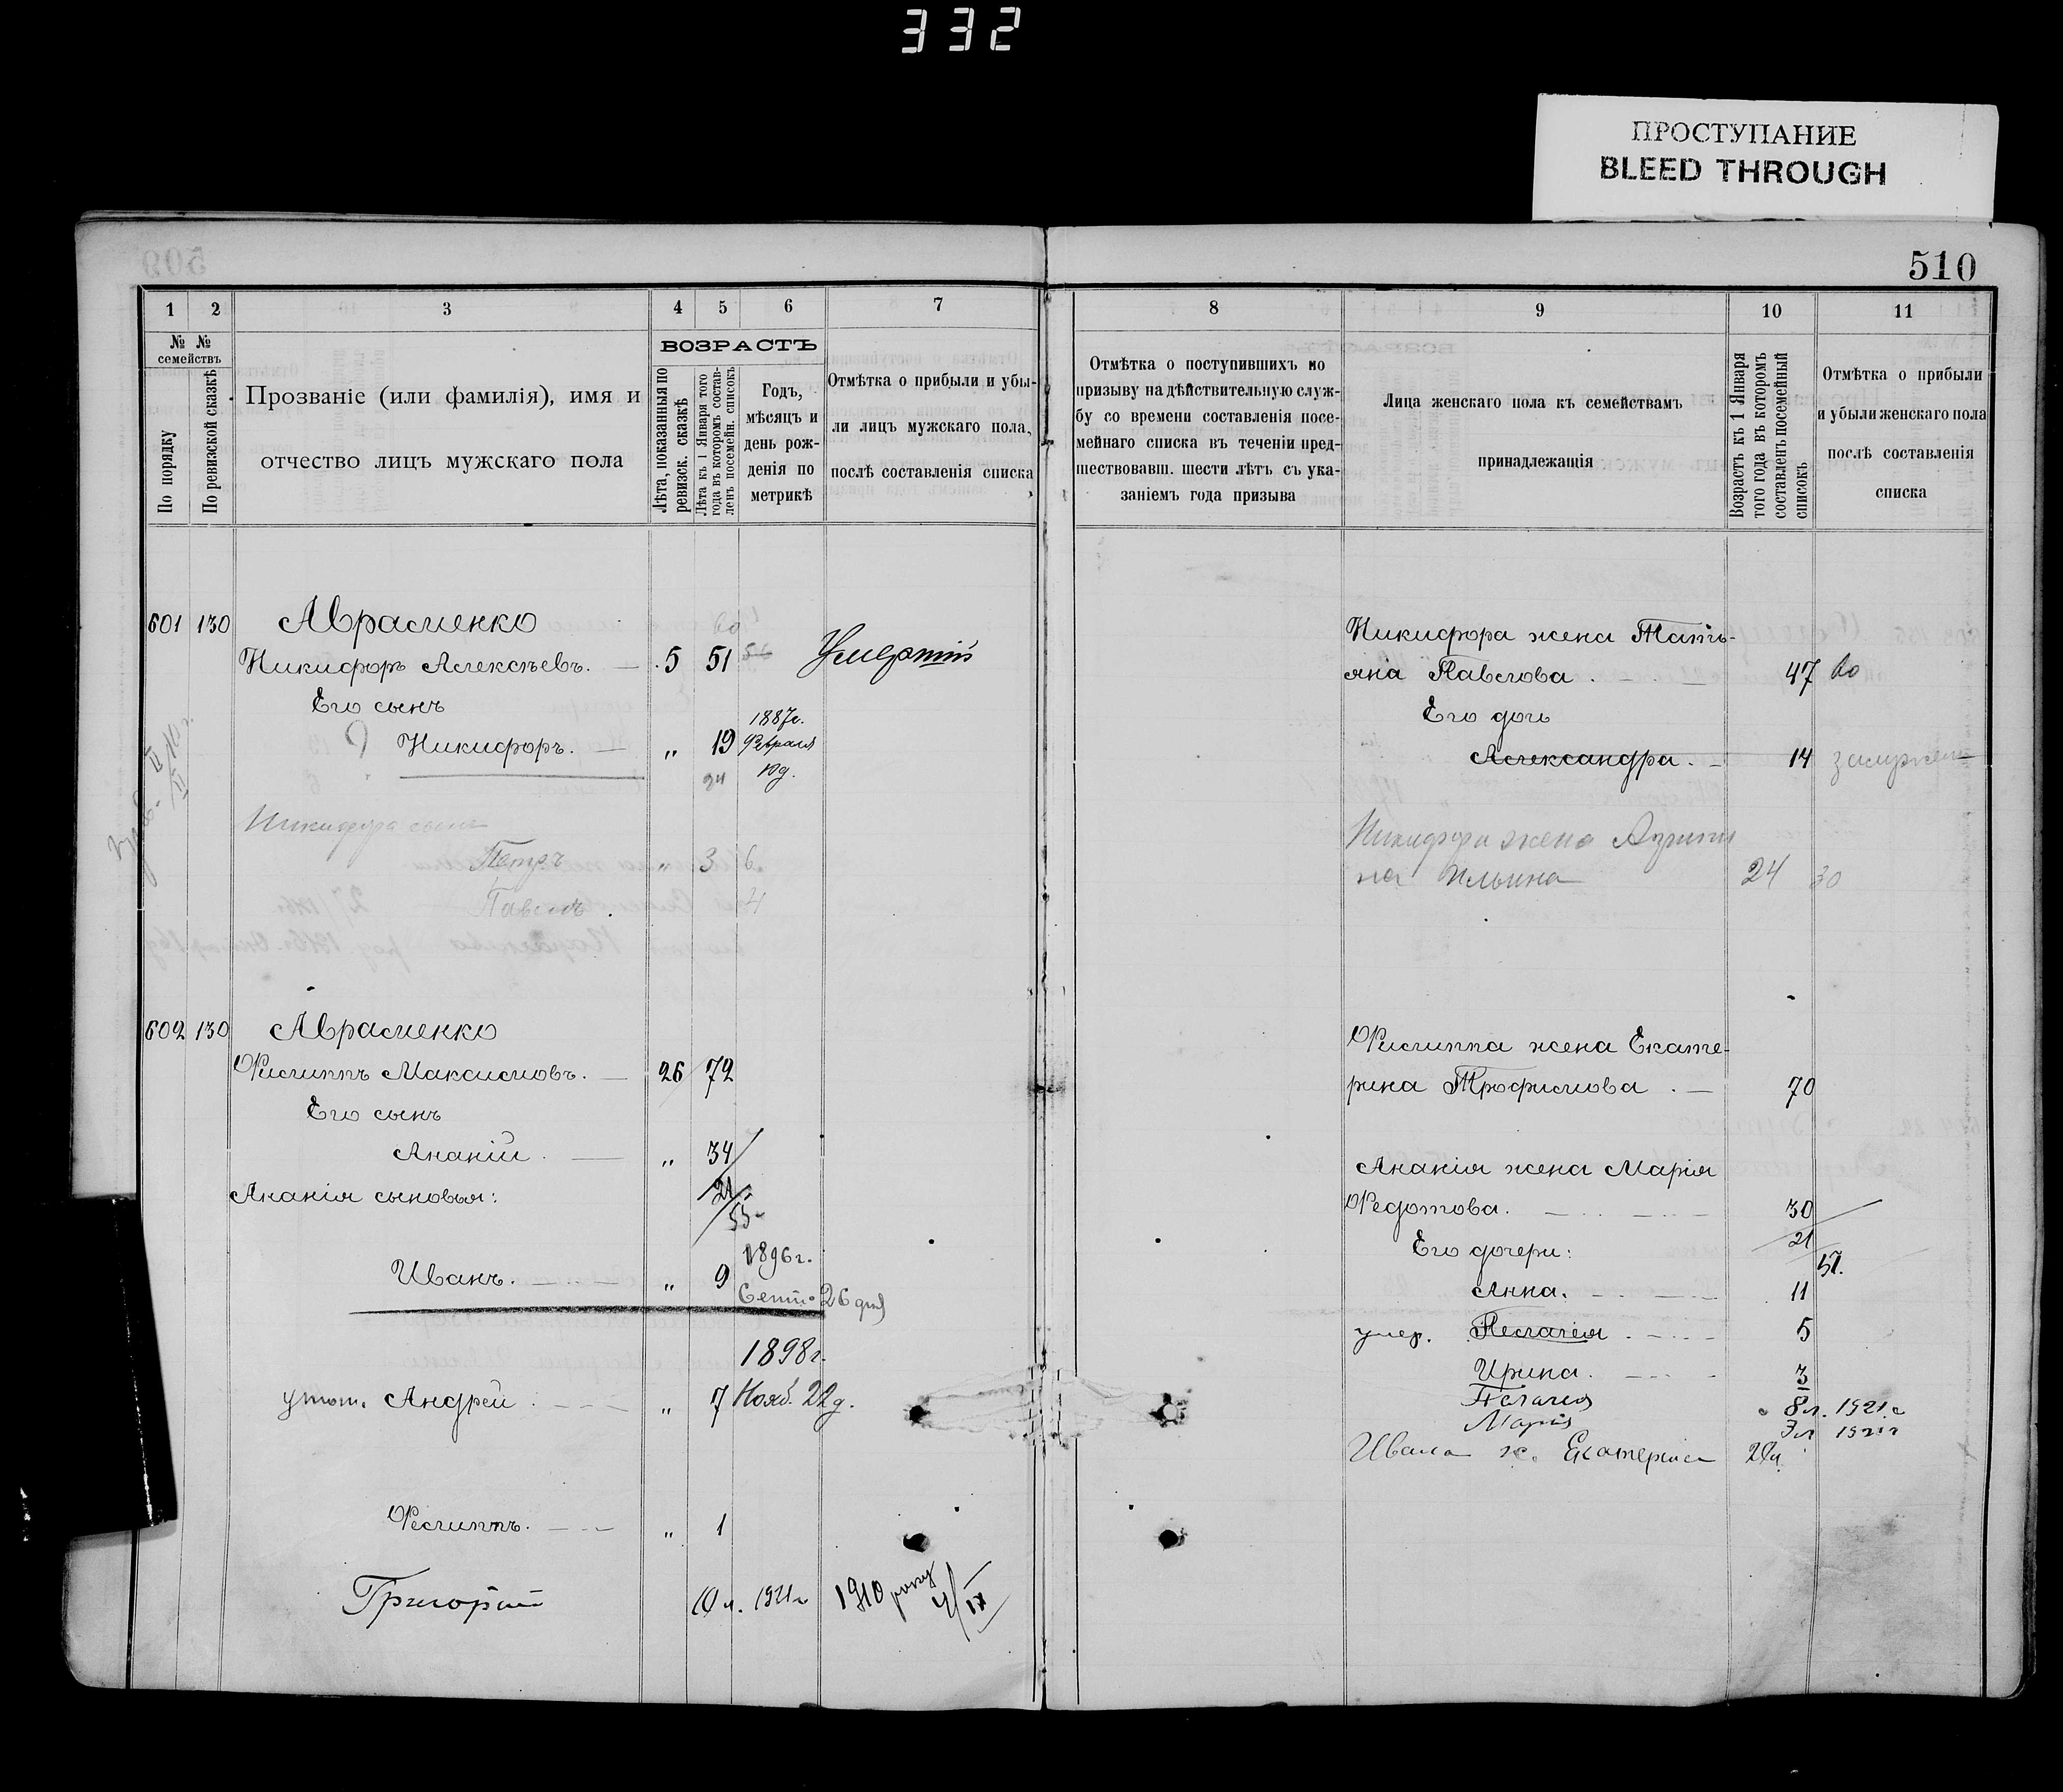 332
ПРОСТУПАНИЕ
BLEED THROUGH
509
510
1 2 3 4 5 6 7
№ № семействъ
По порядку
По ревизской сказкѣ
Прозваніе (или фамилія), имя и
отчество лицъ мужскаго пола
ВОЗРАСТЪ
Лѣта, показанныя по
ревизск. сказкѣ
Лѣта къ 1 Января того
года въ которомъ состав-
ленъ посемейн. списокъ
Годъ,
мѣсяцъ и
день рож-
денія по
метрикѣ
Отмѣтка о прибыли и убы-
ли лицъ мужскаго пола,
послѣ составленія списка
8 9 10 11
Отмѣтка о поступившихъ по
призыву на дѣйствительную служ-
бу со времени составленія посе-
мейнаго списка въ теченіи пред-
шествовавш. шести лѣтъ съ ука-
заніемъ года призыва
Лица женскаго пола къ семействамъ
принадлежащія
Возрастъ къ 1 Января
того года въ которомъ
составленъ посемейный
списокъ
Отмѣтка о прибыли
и убыли женскаго пола
послѣ составленія
списка
601 130 Авраменко
Никифоръ Алексѣевъ. 5 51 56 Умерший
Его сынъ
Никифоръ. „ 19 1887г. Февраля 10д.
24
Никифора сыны
Петръ „ 3 6
Павелъ 4
602 130 Авраменко
Филиппъ Максимовъ. 26 72
Его сынъ
Ананій „ 34
Ананія сыновья: 21
55
Иванъ. „ 9 1896г.
Сент. 26 дня
1898г.
Андрей „ 7 Нояб. 22д.
Филиппъ. „ 1
Григорий 10 л. 1921г 1910 року 4/IX
Никифора жена Тать-
яна Павлова. 47 60
Его дочь
Александра. 14 замужем
Никифора жена Агрипи
на Ильина 24 30
Филиппа жена Екате-
рина Трофимова 70
Ананія жена Марія
Федотова. 30
21
Его дочери: 51.
Анна. 11
умер. Пелагія 5
Ирина. 3
Пелагия 8 л. 1921 г
Мария 3 л 1921 г
Ивана ж. Екатерина